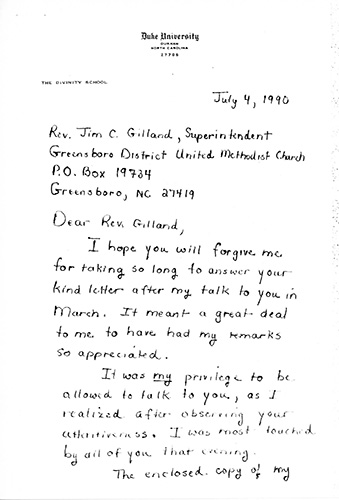 Duke University
DURHAM
NORTH CAROLINA
27706
THE DIVINITY SCHOOL
July 4, 1990
Rev. Jim C. Gilland, Superintendent
Greensboro District United Methodist Church
P.O. Box 19734
Greensboro, NC 27419
Dear Rev. Gilland,
I hope you will forgive me
for taking so long to answer your
kind letter after my talk to you in
March. It meant a great deal
to me to have had my remarks
so appreciated.
It was my privilege to be
allowed to talk to you, as I
realized after observing your
attentiveness. I was most touched
by all of you that evening.
The enclosed copy of my